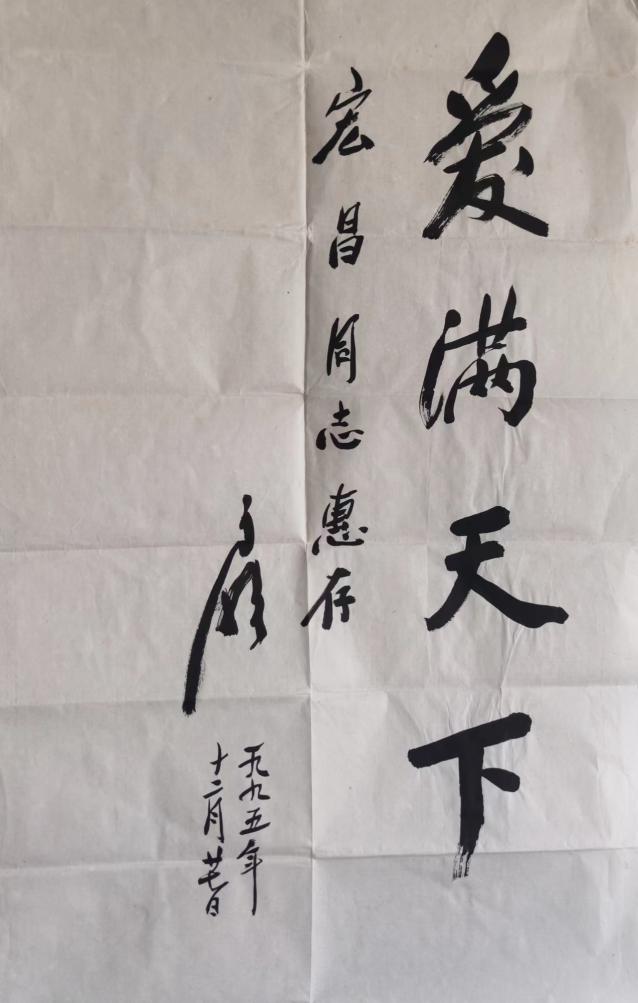 爱满天下
宏昌同志惠存
一九九五年
十二月廿七日